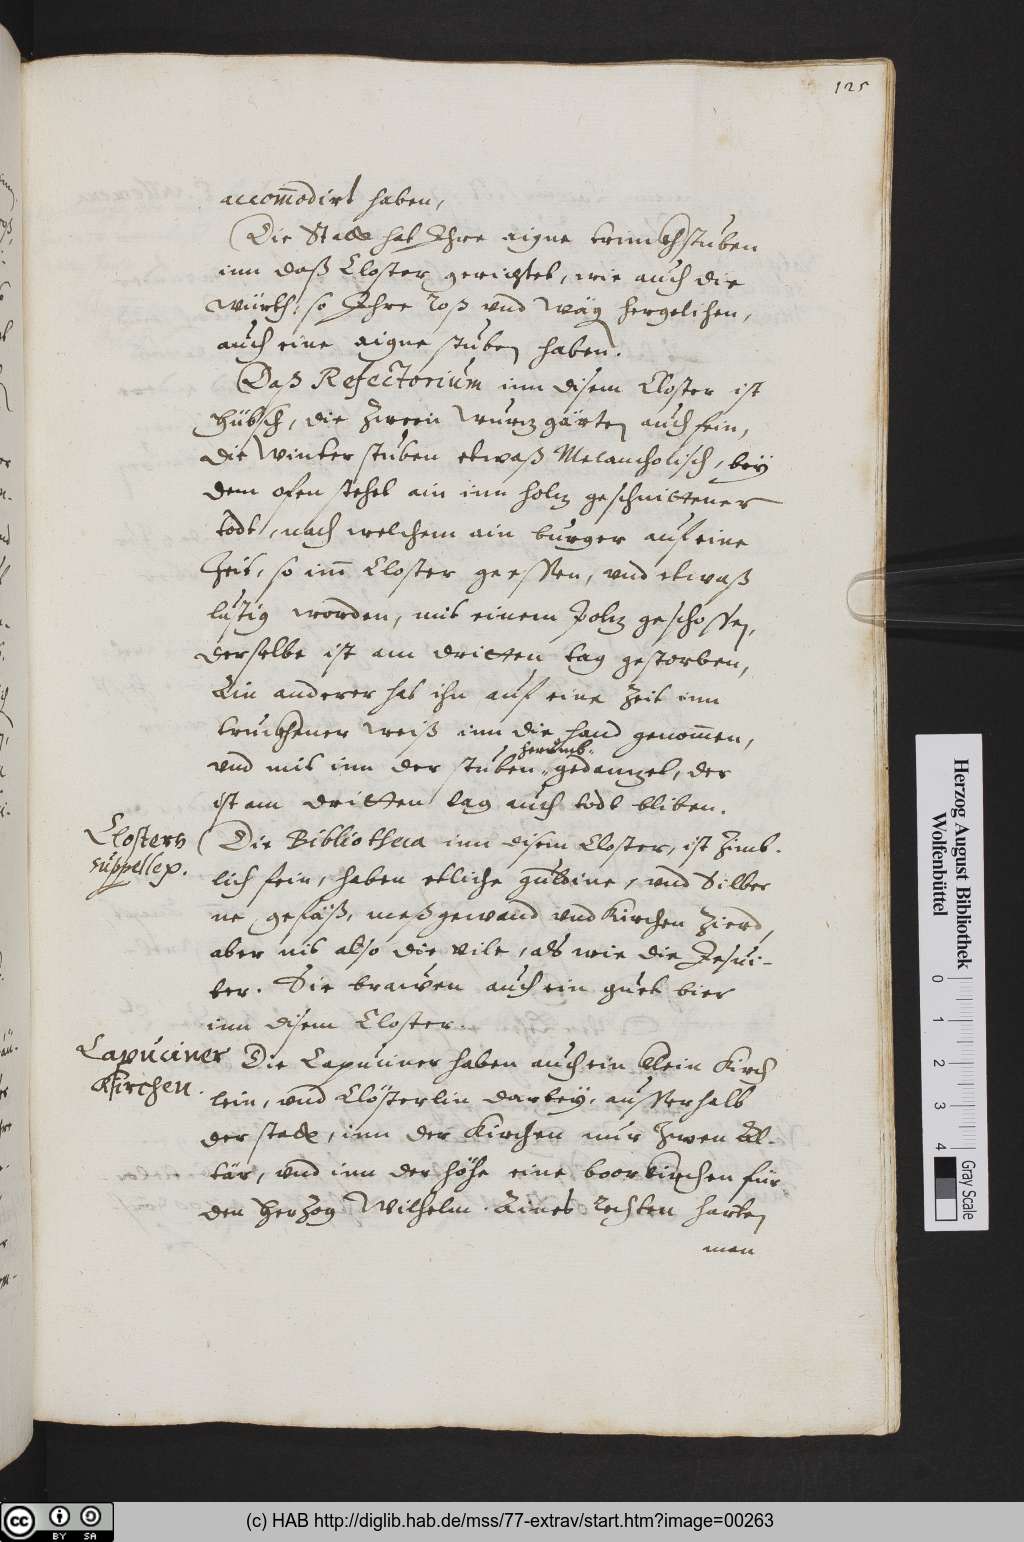 125
accom̄odirt haben,
Die Statt hat Ihre aigne trinckhstuben
inn daß Closter gerichtet, wie auch die
würth, so Ihre Roß vnd Wäg hergelichen,
auch eine aigne stuben haben.
Daß Refectorium inn disem Closter ist
hübsch, die zween Wurzgärten auch fein,
die Winterstuben etwaß Melancholisch, bey
dem ofen stehet ain inn holtz geschnittener
todt, nach welchem ain burger auf eine
Zeit, so im̄ Closter geessen, vnd etwaß
lustig worden, mit einem Poltz geschossen,
derselbe ist am dritten tag gestorben,
Ein anderer hat ihn auf eine Zeit inn
trunckhener weiß inn die hand genom̄en,
herumb
vnd mit inn der stuben gedantzet, der
ist am dritten tag auch todt bliben.
Closters suppellex.
Die Bibliotheca inn disem Closter, ist zimb-
lich fein, haben etliche guldine, vnd Silber
ne gefäß, meßgewand vnd Kirchen Zierd,
aber nit also die vile, als wie die Jesui-
ter. Sie brawen auch ein guet bier
inn disem Closter.
Capuciner Kirchen.
Die Capuciner haben auch ein klein Kirch
lein, vnd Clösterlin darbey, ausserhalb
der statt, inn der Kirchen nur zwen Al-
tär, vnd inn der höhe eine boorkirchen für
den Hertzog Wilhelm. Eines rechten harten
man
Herzog August Bibliothek
Wolfenbüttel
0 1 2 3 4
Gray Scale
cc BY SA
(c) HAB http://diglib.hab.de/mss/77-extrav/start.htm?image=00263